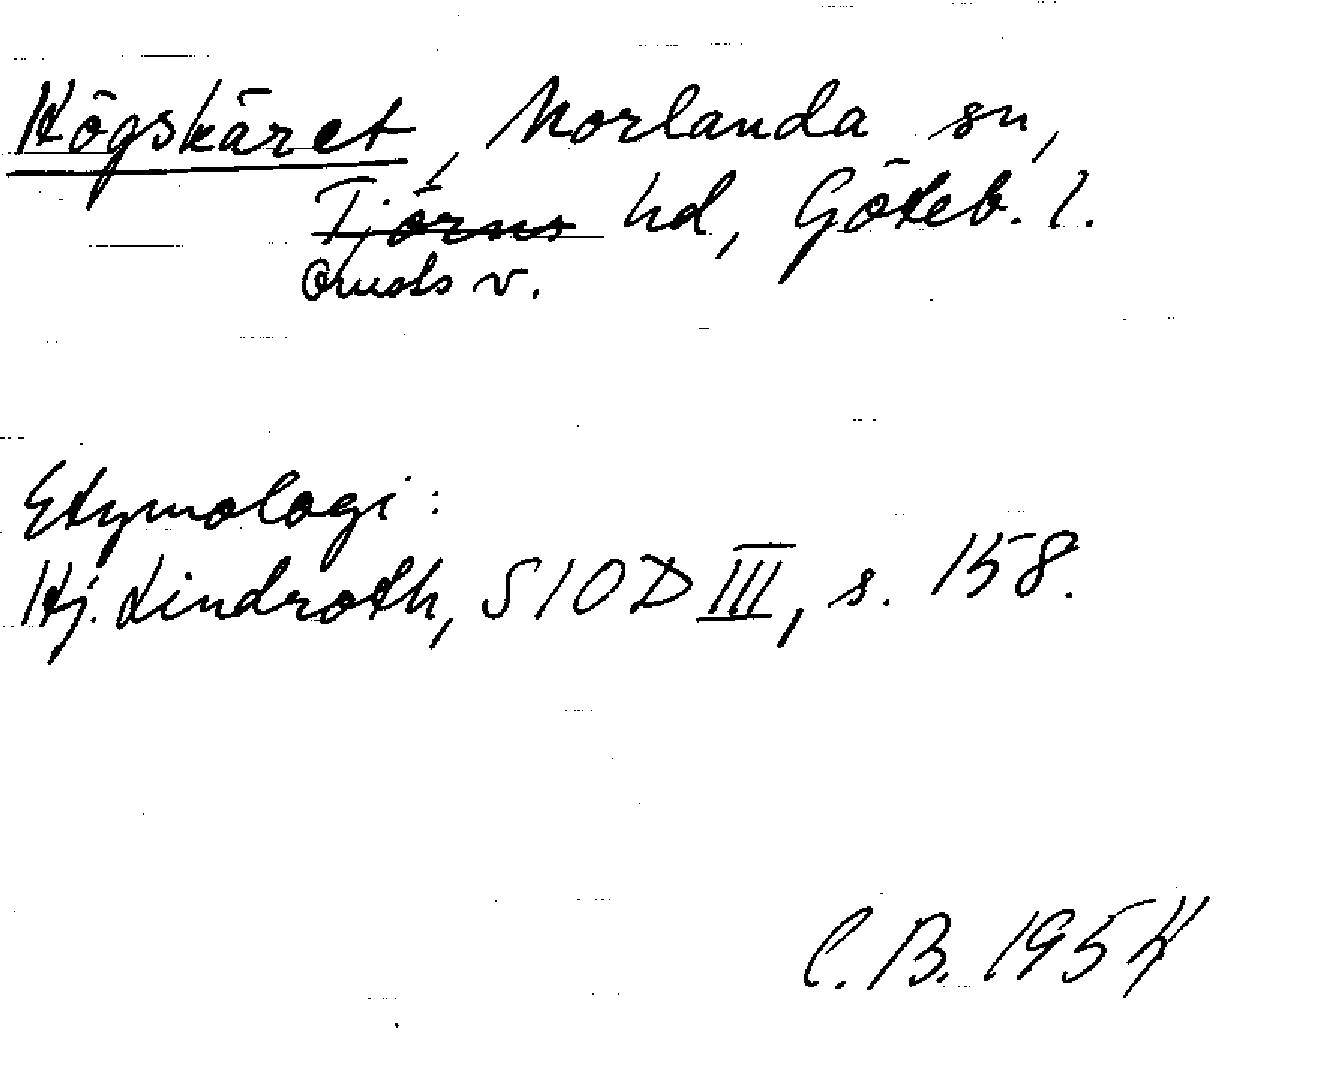 Högskäret, Morlanda sn,
Tjörns hd, Göteb. l.
Orusts v.
Etymologi:
Hj. Lindroth, SIOD III, s. 158.
C. B. 1954